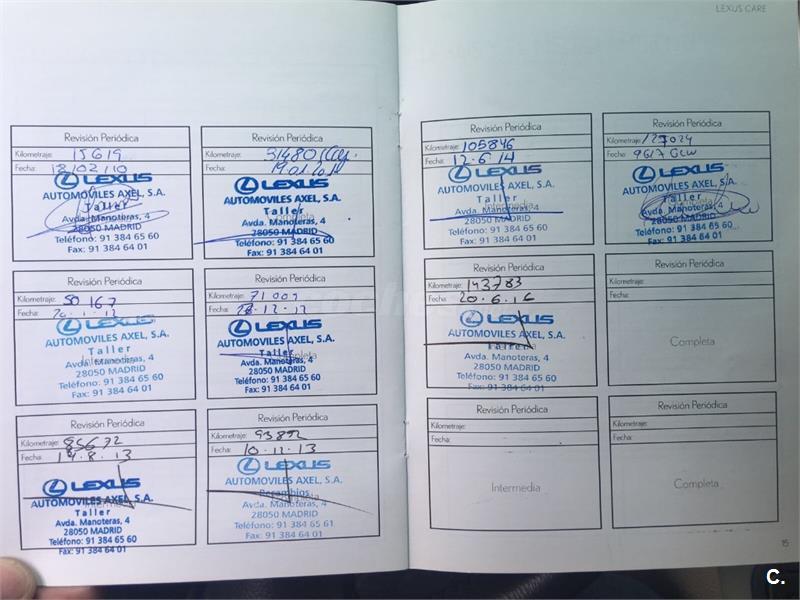 LEXUS CARE
Revisión Periódica
Kilometraje: 15619
Fecha: 18/02/10
LEXUS
AUTOMOVILES AXEL, S.A.
Taller
Avda. Manoteras, 4
28050 MADRID
Teléfono: 91 384 65 60
Fax: 91 384 64 01
Revisión Periódica
Kilometraje: 31480
Fecha:
LEXUS
AUTOMOVILES AXEL, S.A.
Taller
Completa
Avda. Manoteras, 4
28050 MADRID
Teléfono: 91 384 65 60
Fax: 91 384 64 01
Revisión Periódica
Kilometraje: 50167
Fecha: 20.1.12
LEXUS
AUTOMOVILES AXEL, S.A.
Taller
Avda. Manoteras, 4
28050 MADRID
Teléfono: 91 384 65 60
Fax: 91 384 64 01
Revisión Periódica
Kilometraje: 71001
Fecha: 12.12
LEXUS
AUTOMOVILES AXEL, S.A.
Taller
Completa
Avda. Manoteras, 4
28050 MADRID
Teléfono: 91 384 65 60
Fax: 91 384 64 01
Revisión Periódica
Kilometraje: 85672
Fecha: 14.8.13
LEXUS
AUTOMOVILES AXEL, S.A.
Taller
Avda. Manoteras, 4
28050 MADRID
Teléfono: 91 384 65 60
Fax: 91 384 64 01
Revisión Periódica
Kilometraje: 93892
Fecha: 10.12.13
LEXUS
AUTOMOVILES AXEL, S.A.
Recambios
Completa
Avda. Manoteras, 4
28050 MADRID
Teléfono: 91 384 65 61
Fax: 91 384 64 01
Revisión Periódica
Kilometraje: 105846
Fecha: 12.6.14
LEXUS
AUTOMOVILES AXEL, S.A.
Taller
Intermedia
Avda. Manoteras, 4
28050 MADRID
Teléfono: 91 384 65 60
Fax: 91 384 64 01
Revisión Periódica
Kilometraje:
Fecha: 9617 GLW
LEXUS
AUTOMOVILES AXEL, S.A.
Taller
Avda. Manoteras, 4
28050 MADRID
Teléfono: 91 384 65 60
Fax: 91 384 64 01
Revisión Periódica
Kilometraje: 143783
Fecha: 20.6.16
LEXUS
AUTOMOVILES AXEL, S.A.
Taller
Avda. Manoteras, 4
28050 MADRID
Teléfono: 91 384 65 60
Fax: 91 384 64 01
Revisión Periódica
Kilometraje:
Fecha:
Completa
Revisión Periódica
Kilometraje:
Fecha:
Intermedia
Revisión Periódica
Kilometraje:
Fecha:
Completa
15
C.